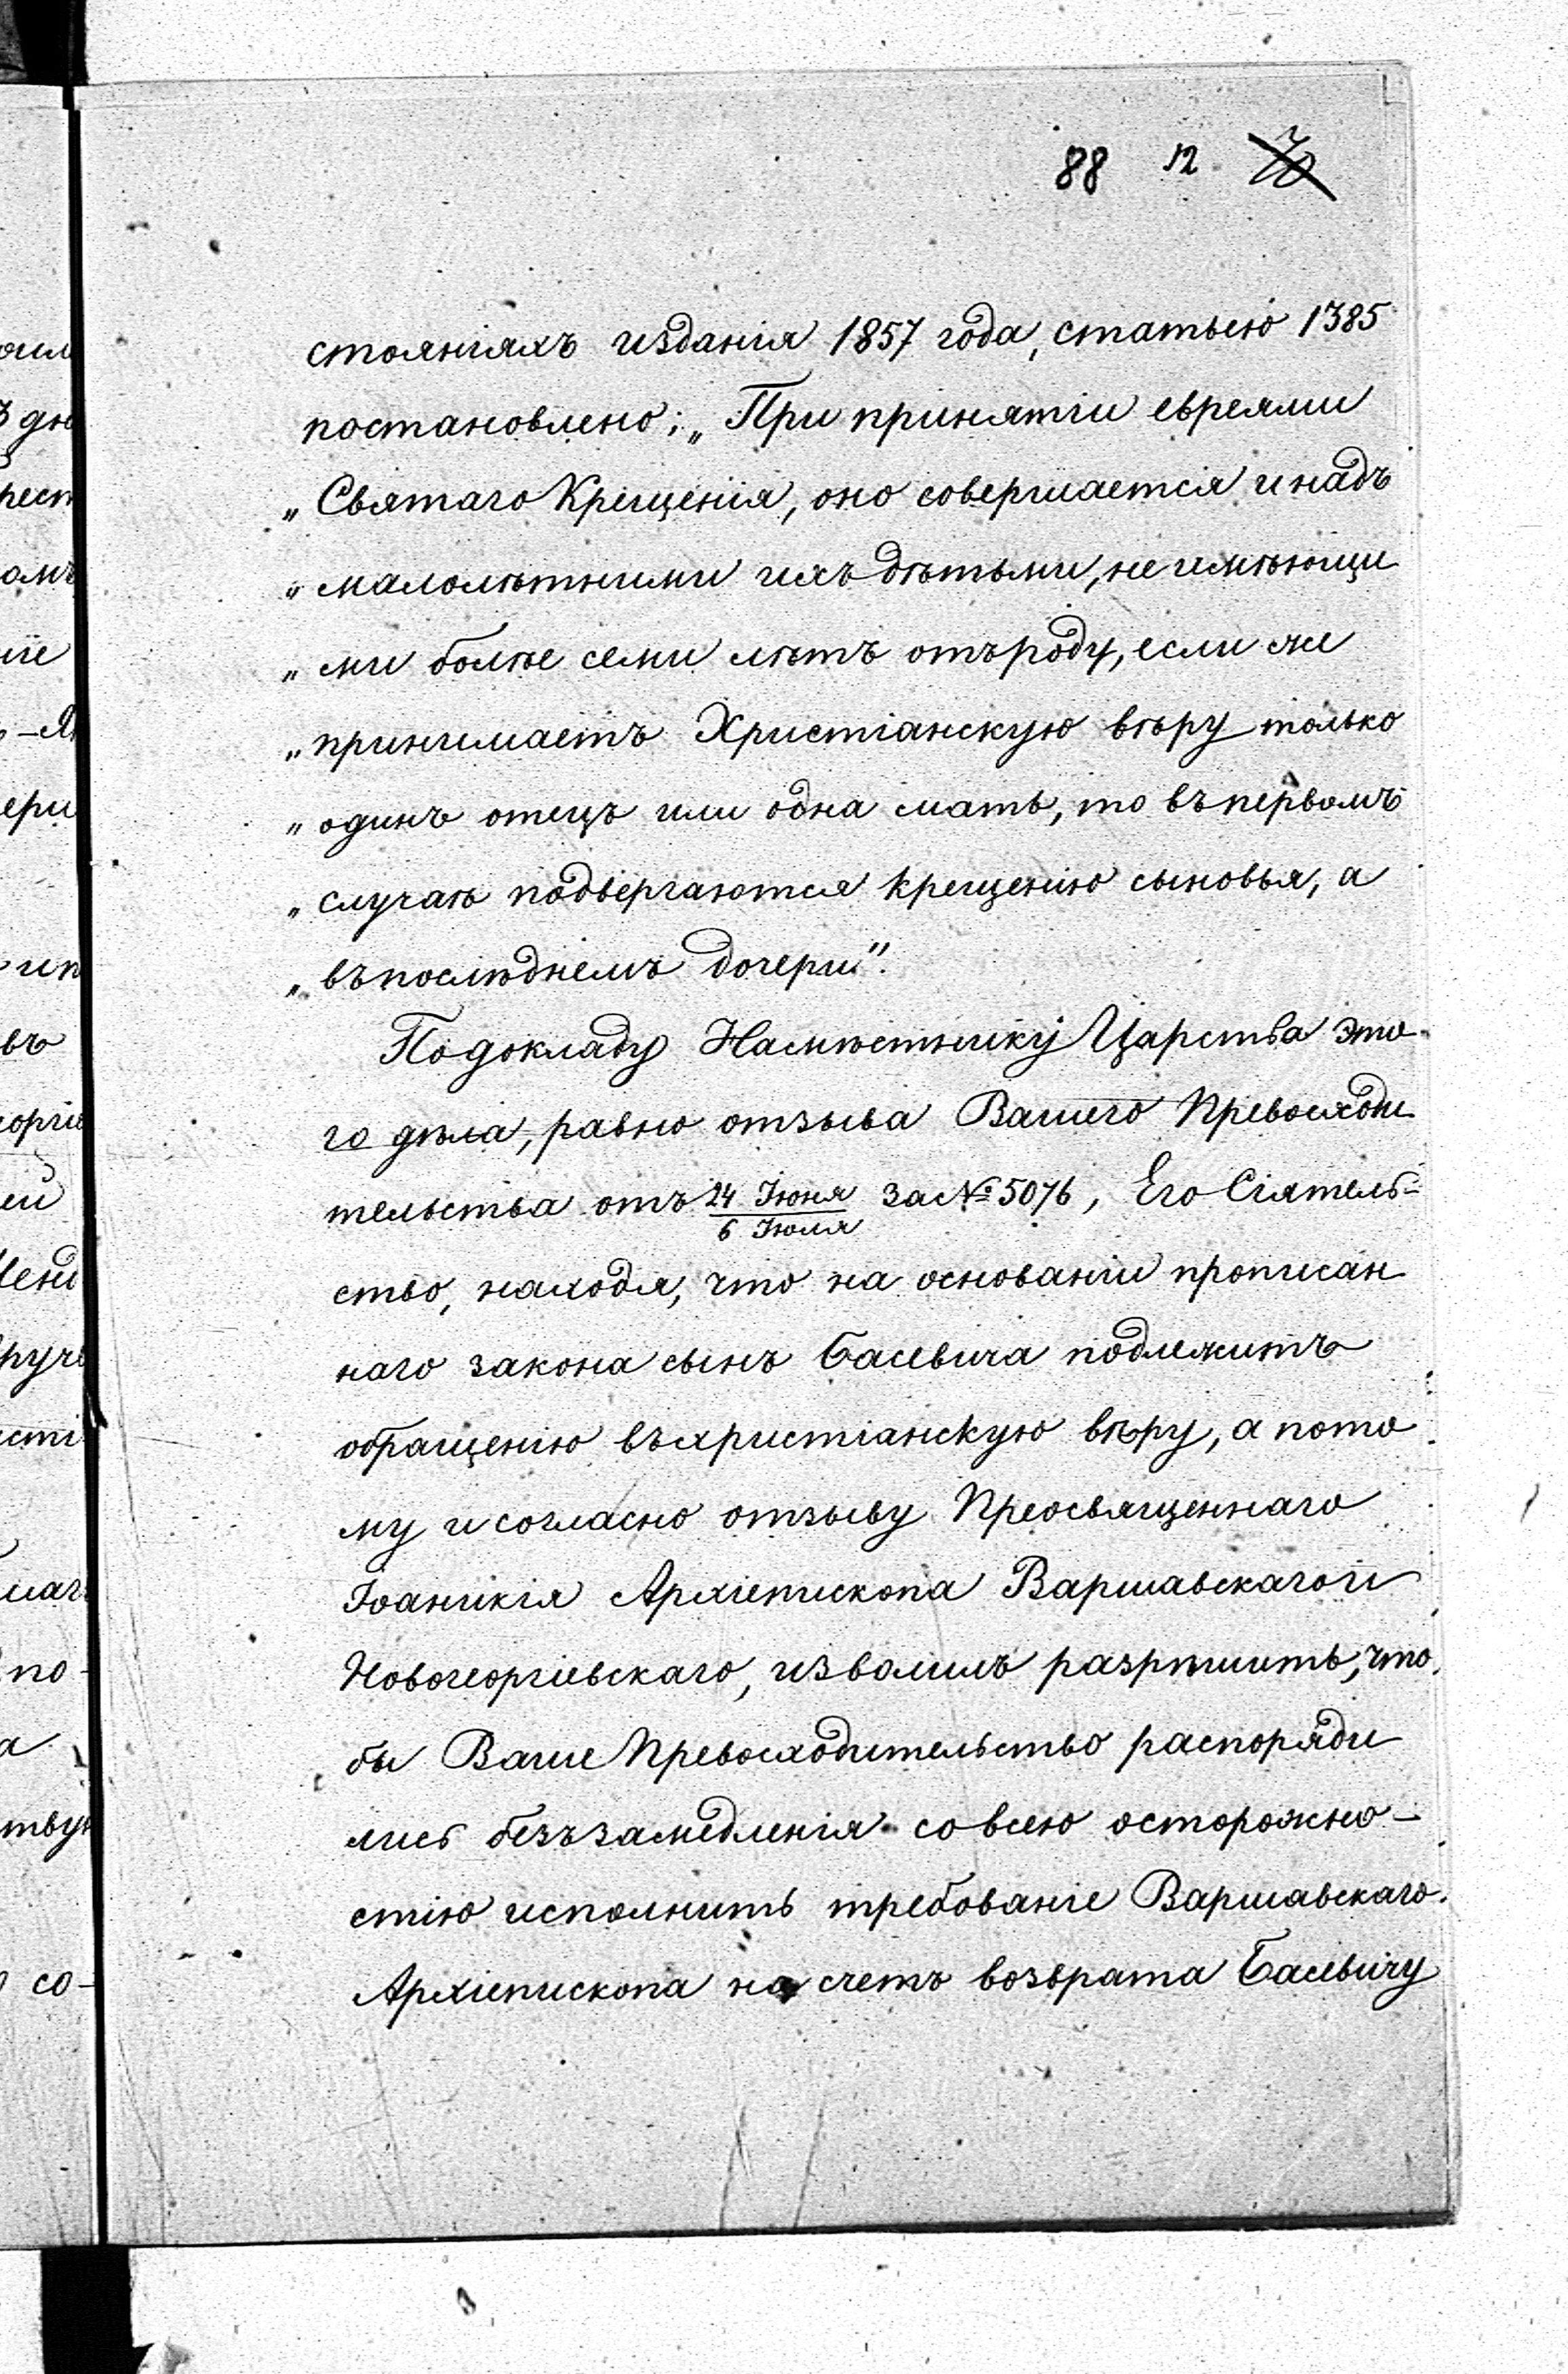 88 12
стояніяхъ изданія 1857 года, статьею 1385
постановлено: „При принятіи евреями
„Святаго Крещенія, оно совершается и надъ
„малолѣтними ихъ дѣтьми, не имѣющи
„ми болѣе семи лѣтъ отъ роду, если же
„принимаетъ Христіанскую вѣру только
„одинъ отецъ или одна мать, то въ первомъ
„случаѣ подвергаются крещенію сыновья, а
„въ послѣднемъ дочери".
По докладу Намѣстнику Царства это
го дѣла, равно отзыва Вашего Превосходи
тельства отъ 24 Іюня / 6 Іюля за № 5076, Его Сіятель-
ство, находя, что на основаніи прописан
наго закона сынъ Басевича подлежитъ
обращенію въ христіанскую вѣру, а пото
му и согласно отзыву Преосвященнаго
Іоаникія Архіепископа Варшавскаго и
Новогеоргіевскаго, изволилъ разрѣшить, что
бы Ваше Превосходительство распоряди
лись безъ замедленія со всею осторожно-
стію исполнить требованіе Варшавскаго
Архіепископа на счетъ возврата Басевичу